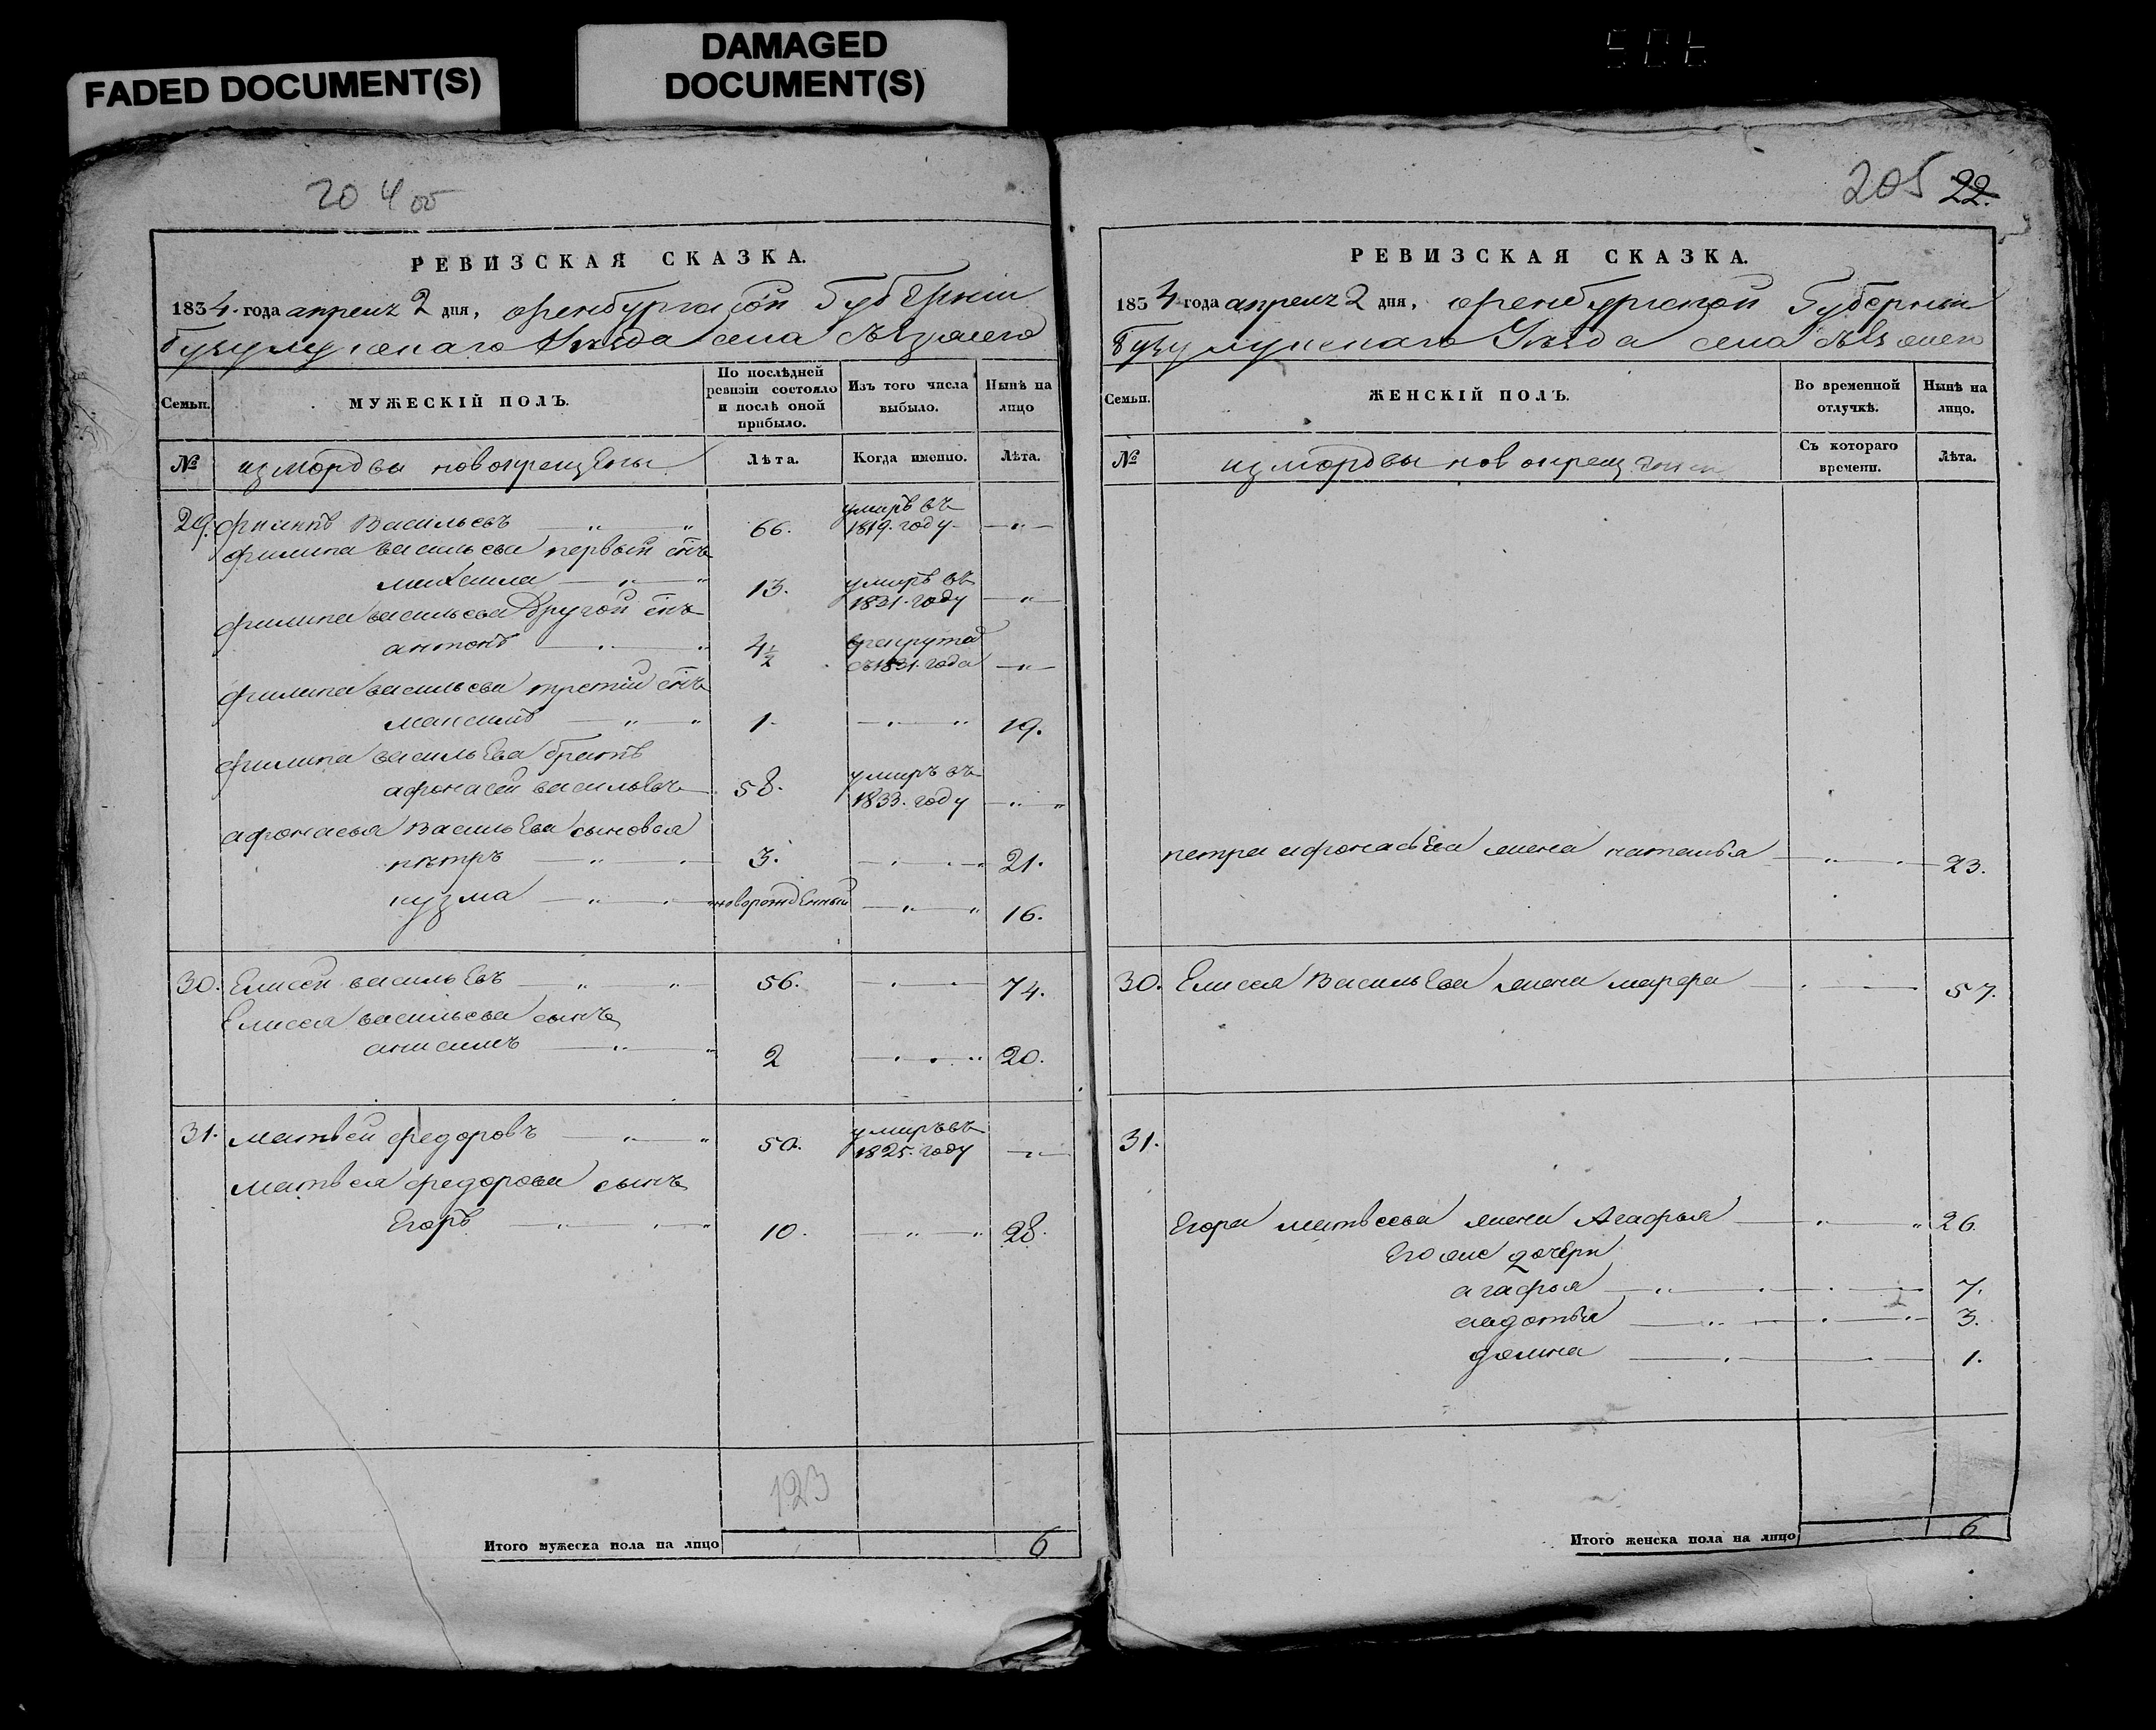 FADED DOCUMENT(S)
DAMAGED
DOCUMENT(S)
204 об
РЕВИЗСКАЯ СКАЗКА.
1834. года апреля 2 дня, оренбургской Губерний
бузулуцкаго Уезда села съезжего
Семьи.
МУЖЕСКІЙ ПОЛЪ.
По послѣдней ревизіи состояло и послѣ оной прибыло.
Изъ того числа выбыло.
Нынѣ на лицо
№
из мордвы новокрещены
Лѣта.
Когда именно.
Лѣта.
29. Филипъ Васильевъ 66. умиръ въ 1819. году
филипа васильева первый сiнъ
михаила 13. умиръ въ 1831. году
филипа васильева другой сiнъ
антонъ 4½ врекруты съ 1831. года
филипа васильева третий сiнъ
максимъ 1. 19.
филипа васильЕва братъ
афонасей васильевъ 58. умиръ въ 1833. году
афонасья васильЕва сыновья
пѣтръ 3. 21.
кузма новорожденный 16.
30. Елисей васильЕвъ 56. 74.
Елисея васильева сынъ
анисимъ 2 20.
31. матвей федоровъ 50. умиръ въ 1825. году
матвея федорова сынъ
Егоръ 10. 28.
123
Итого мужеска пола на лицо 6
205 22.
РЕВИЗСКАЯ СКАЗКА.
1834 года апреля 2 дня, оренбургской Губернии
бузулуцкаго Уезда села съезжего
Семьи.
ЖЕНСКІЙ ПОЛЪ.
Во временной отлучкѣ.
Нынѣ на лицо.
№
из мордвы новокрещены
Съ котораго времени.
Лѣта.
петра афонасьЕва жена наталья 23.
30. Елисея ВасильЕва жена марфа 57.
31.
Егора матвеева жена Агафья 26
Его же дочери
агафья 7.
авдотья 3.
домна 1.
Итого женска пола на лицо 6